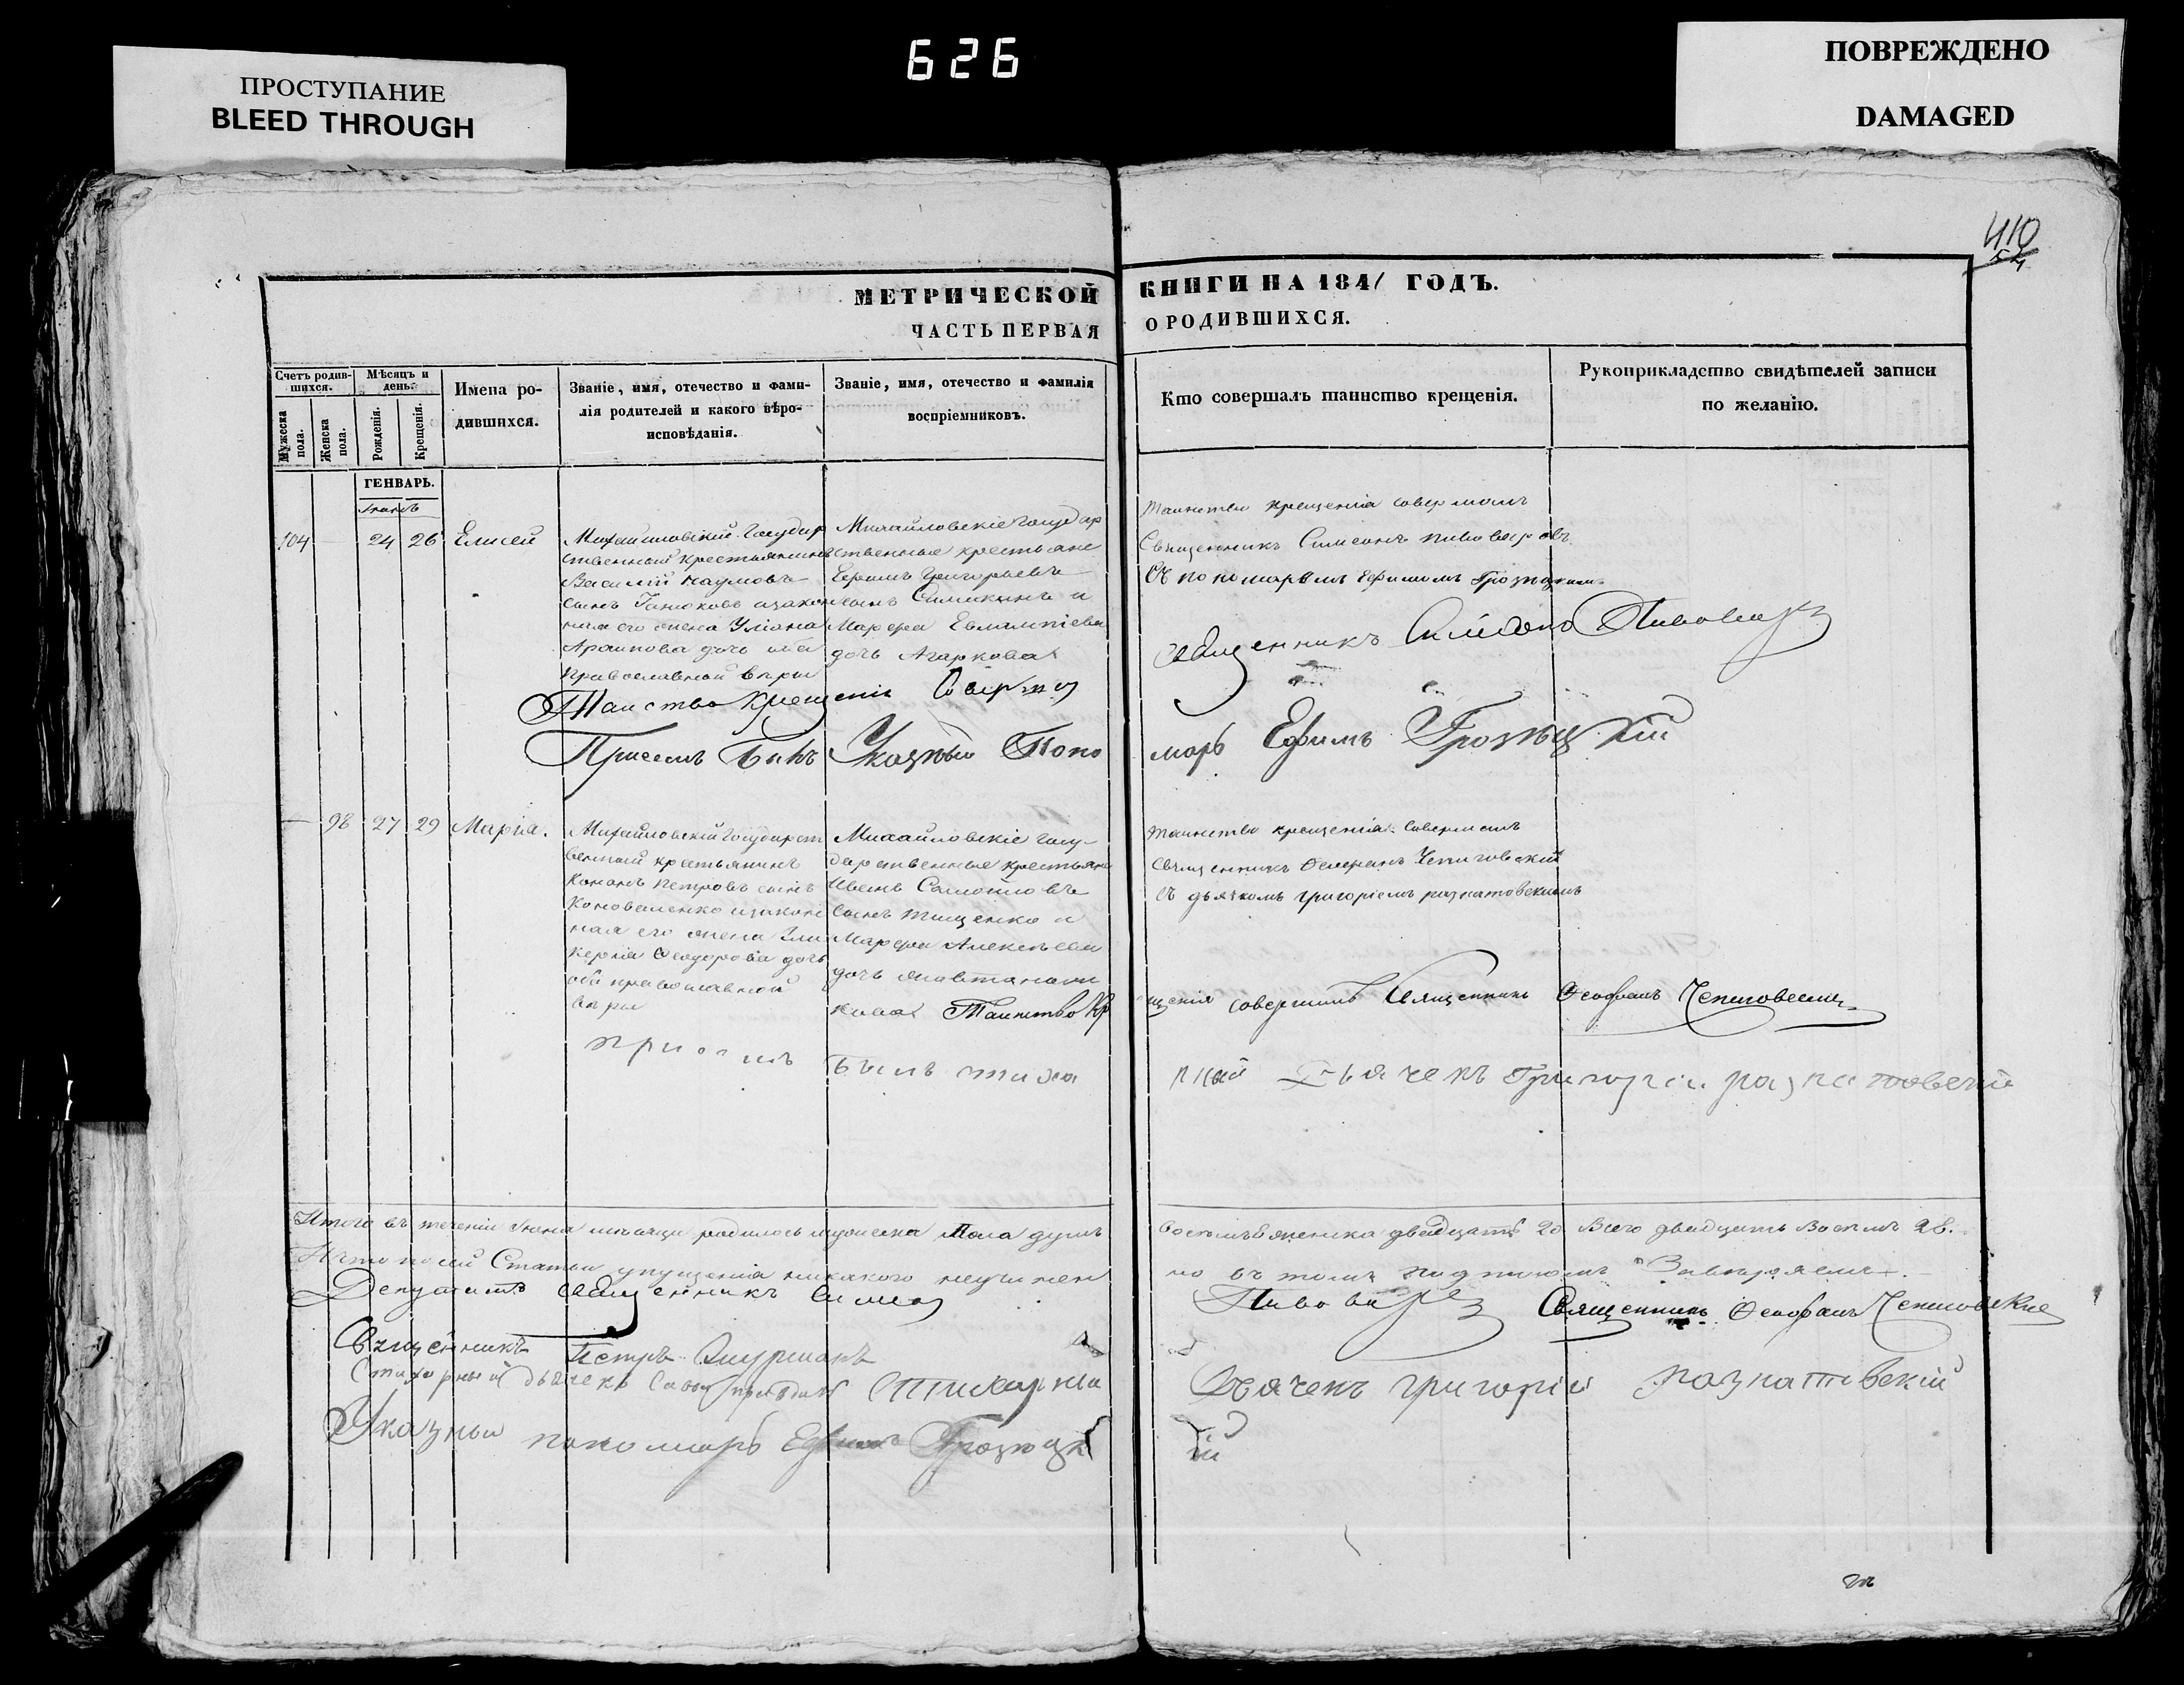 626
ПРОСТУПАНИЕ
BLEED THROUGH
ПОВРЕЖДЕНО
DAMAGED
410
МЕТРИЧЕСКОЙ
ЧАСТЬ ПЕРВАЯ
КНИГИ НА 1841 ГОДЪ.
О РОДИВШИХСЯ.
Счетъ родив-
шихся.
Мужеска
пола.
Женска
пола.
Мѣсяцъ и
день.
Рожденія.
Крещенія.
Имена ро-
дившихся.
Званіе, имя, отечество и фами-
лія родителей и какого вѣро-
исповѣданія.
Званіе, имя, отечество и фамилія
воспріемниковъ.
Кто совершалъ таинство крещенія.
Рукоприкладство свидѣтелей записи
по желанію.
ГЕНВАРЬ.
104
—
24
26
Елисей
Михайловскій Государ
ственный крестьянинъ
Василій Наумовъ
сынъ
ная его жена Уліана
дочь оба
православной вѣры
Михайловскіе Государ
ственные крестьяне
Ефимъ Григорьевъ
сынъ и
Марфа Евлампіева
дочь Агаркова
Таинство крещенія совершалъ
Священникъ Симеонъ Пивоваровъ
Съ пономаремъ Ефимомъ Грозицкимъ
Таиство Крещенія Соверши
Священникъ Симеонъ Пивоваръ
Присемъ Былъ Указный Поно
марь Ефимъ Грозицкій
—
98
27
29
Марія.
Михайловскій Государст
венный крестьянинъ
Кононъ Петровъ сынъ
Коноваленко изакон
ная его жена Гли
керія Феодорова дочь
оба православной
вѣры
Михайловскіе Госу-
дарственные крестьяне
Иванъ Самойловъ
Сынъ Тищенко и
Марфа Алексѣева
дочь
кова
Таинство крещенія Совершалъ
Священникъ Феофанъ Чепиговскій
съ дьячкомъ Григоріемъ Разнатовскимъ
Таинство Кр
щенія совершилъ Священникъ Феофанъ Чепиговскій
присемъ былъ стиха
рный Дьячекъ Григорій Разнатовскій
Итого въ теченіи Іюня мѣсяца родилось мужеска Пола душъ
восемь женска двадцать 20 Всего двадцать Восемь 28.
Что посей Статьи упущенія никакого неучинен
но въ томъ подписомъ Завѣряемъ.
Депутатъ Священникъ Симео
Пивоваръ
Священникъ Феофанъ Чепиговскій
Священникъ Петръ
Стихарный дьячекъ
Стихарны
й
Дьячекъ Григорій Разнатовскій
Указный пономарь Ефимъ Грозицк
ій